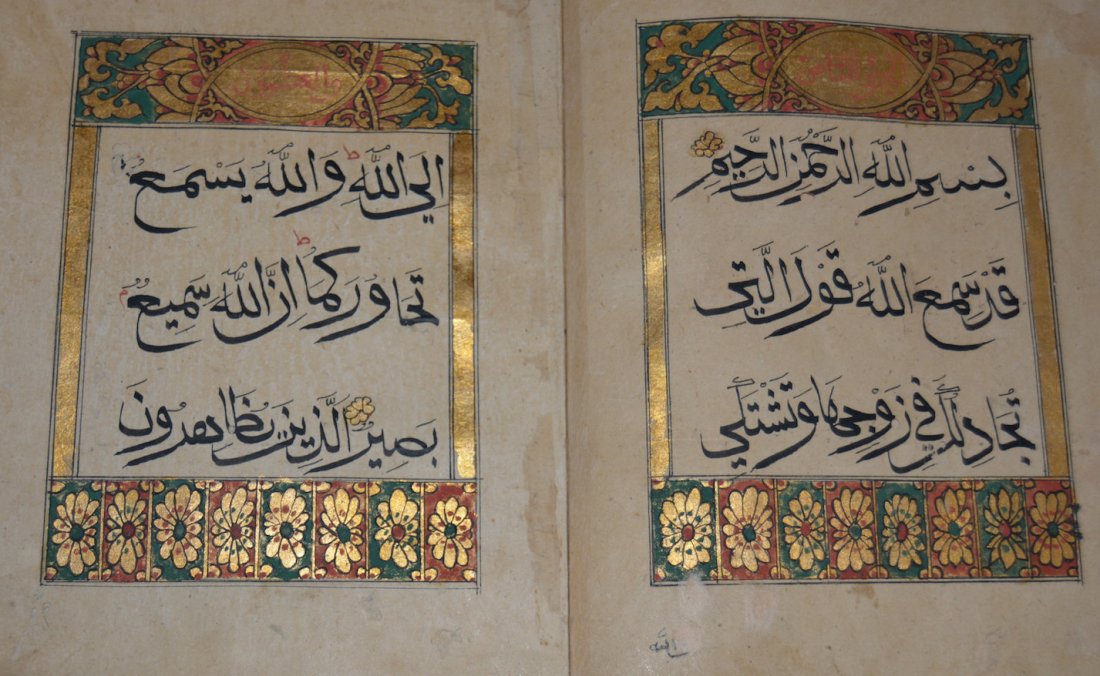 بِسْمِ اللّٰهِ الرَّحْمٰنِ الرَّحِيمِ
قَدْ سَمِعَ اللّٰهُ قَوْلَ الَّتِي
تُجَادِلُكَ فِي زَوْجِهَا وَتَشْتَكِي
اِلَى اللّٰهِ وَاللّٰهُ يَسْمَعُ
تَحَاوُرَكُمَا اِنَّ اللّٰهَ سَمِيعٌ
بَصِيرٌ الَّذِينَ يُظَاهِرُونَ